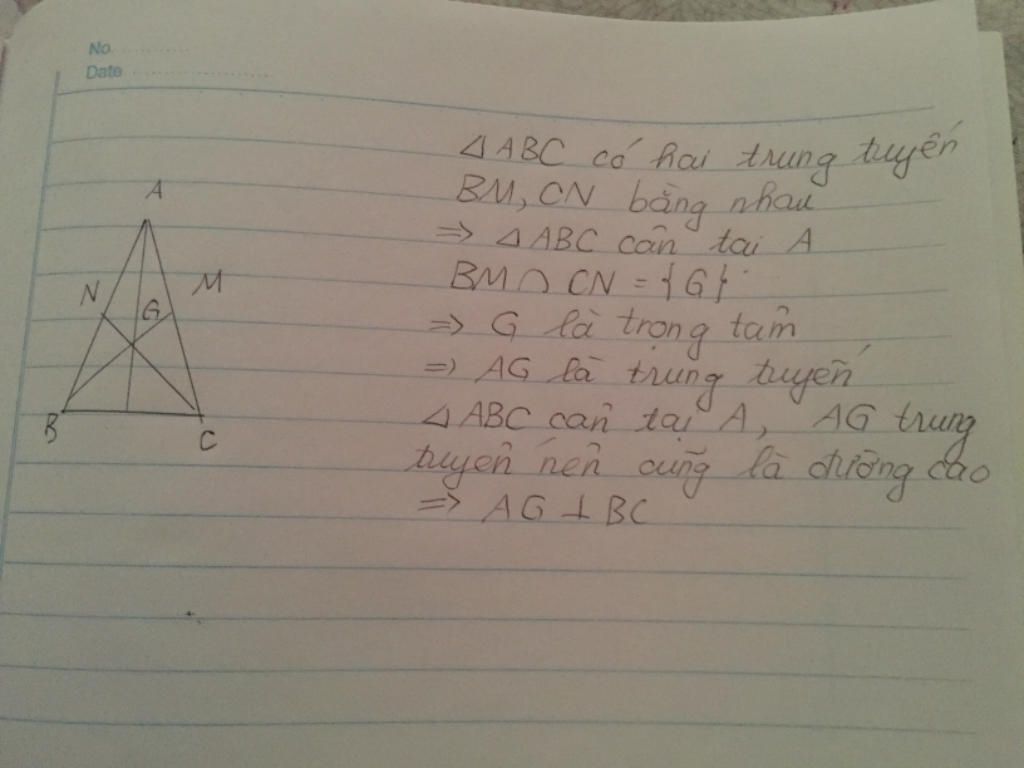 No
Date
△ABC có hai trung tuyến
BM, CN bằng nhau
⇒ △ABC cân tại A
BM ∩ CN = {G}
⇒ G là trọng tâm
⇒ AG là trung tuyến
△ABC cân tại A, AG trung
tuyến nên cũng là đường cao
⇒ AG ⊥ BC
A
N
M
G
B
C